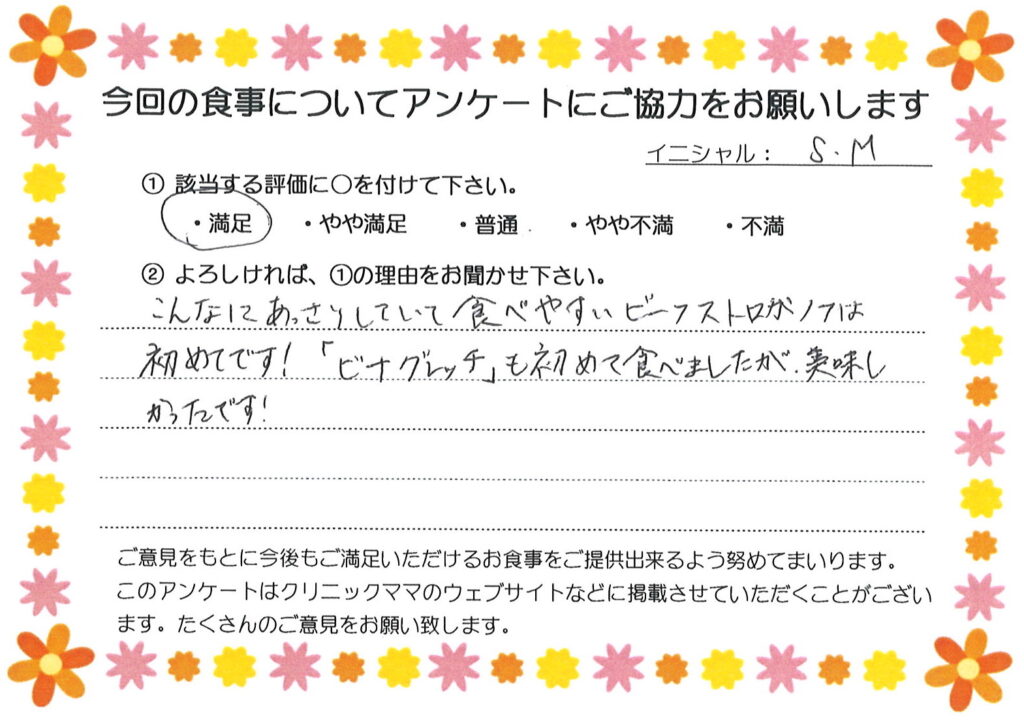 今回の食事についてアンケートにご協力をお願いします
イニシャル： S.M
① 該当する評価に○を付けて下さい。
・満足 ・やや満足 ・普通 ・やや不満 ・不満
② よろしければ、①の理由をお聞かせ下さい。
こんなにあっさりしていて食べやすいビーフストロガノフは
初めてです！「ビナグレッチ」も初めて食べましたが、美味し
かったです！
ご意見をもとに今後もご満足いただけるお食事をご提供出来るよう努めてまいります。
このアンケートはクリニックママのウェブサイトなどに掲載させていただくことがござい
ます。たくさんのご意見をお願い致します。